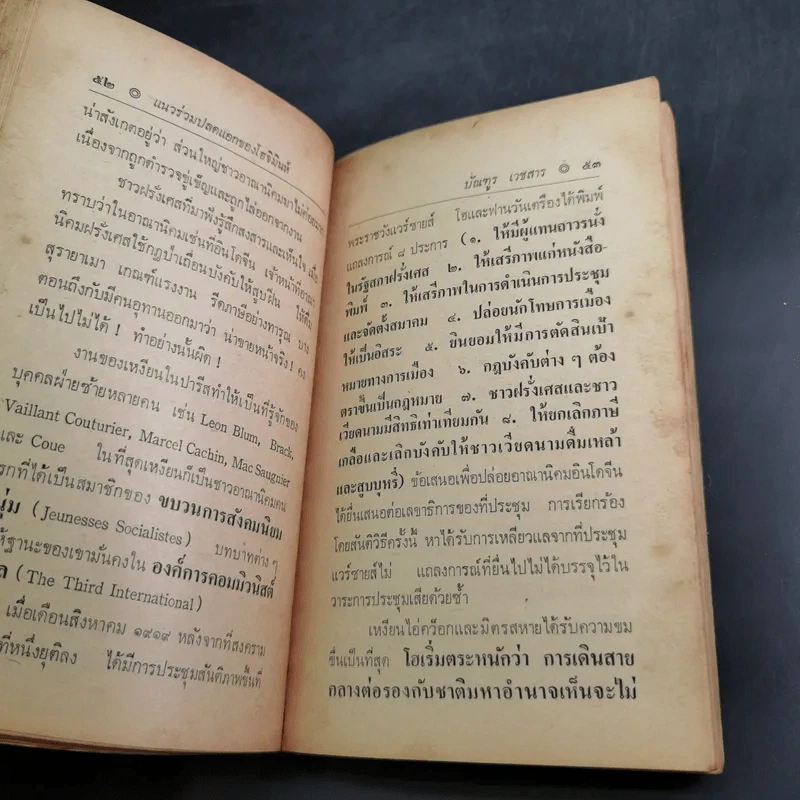 ๕๒ ๏ แนวร่วมปลดแอกของโฮจิมินห์
น่าสังเกตอยู่ว่า ส่วนใหญ่ชาวอาณานิคมมาไม่ค่อย
เนื่องจากถูกตำรวจขู่เข็ญและถูกไล่ออกจากงาน
ชาวฝรั่งเศสที่มาฟังรู้สึกสงสารและเห็นใจ เมื่อ
ทราบว่าในอาณานิคมเช่นที่อินโดจีน เจ้าหน้าที่
นิคมฝรั่งเศสใช้กฎป่าเถื่อนบังคับให้สูบฝิ่น ให้ดื่ม
สุรายาเมา เกณฑ์แรงงาน รีดภาษีอย่างทารุณ บาง
ตอนถึงกับมีคนอุทานออกมาว่า น่าขายหน้าจริง!
เป็นไปไม่ได้! ทำอย่างนั้นผิด!
งานของเหงียนในปารีสทำให้เป็นที่รู้จักของ
บุคคลฝ่ายซ้ายหลายคน เช่น Leon Blum, Brack,
Vaillant Couturier, Marcel Cachin, Mac Saugnier
และ Coue ในที่สุดเหงียนก็เป็นชาวอาณานิคมคน
แรกที่ได้เป็นสมาชิกของ ขบวนการสังคมนิยม
หนุ่ม (Jeunesses Socialistes) บทบาทต่าง ๆ
ให้ฐานะของเขามั่นคงใน องค์การคอมมิวนิสต์
ล (The Third International)
เมื่อเดือนสิงหาคม ๑๙๑๙ หลังจากที่สงคราม
ที่หนึ่งยุติลง ได้มีการประชุมสันติภาพขึ้นที่
บัณฑูร เวชสาร ๏ ๕๓
พระราชวังแวร์ซายส์ โฮและฟานวันเครื่องได้พิมพ์
แถลงการณ์ ๘ ประการ (๑. ให้มีผู้แทนถาวรนั่ง
ในรัฐสภาฝรั่งเศส ๒. ให้เสรีภาพแก่หนังสือ-
พิมพ์ ๓. ให้เสรีภาพในการดำเนินการประชุม
และจัดตั้งสมาคม ๔. ปล่อยนักโทษการเมือง
ให้เป็นอิสระ ๕. ยินยอมให้มีการตัดสินเป้า
หมายทางการเมือง ๖. กฎบังคับต่าง ๆ ต้อง
ตราขึ้นเป็นกฎหมาย ๗. ชาวฝรั่งเศสและชาว
เวียดนามมีสิทธิเท่าเทียมกัน ๘. ให้ยกเลิกภาษี
เกลือและเลิกบังคับให้ชาวเวียดนามดื่มเหล้า
และสูบบุหรี่) ข้อเสนอเพื่อปล่อยอาณานิคมอินโดจีน
ได้ยื่นเสนอต่อเลขาธิการของที่ประชุม การเรียกร้อง
โดยสันติวิธีครั้งนี้ หาได้รับการเหลียวแลจากที่ประชุม
แวร์ซายส์ไม่ แถลงการณ์ที่ยื่นไปไม่ได้บรรจุไว้ใน
วาระการประชุมเสียด้วยซ้ำ
เหงียนไอ่คว็อกและมิตรสหายได้รับความขม
ขื่นเป็นที่สุด โฮเริ่มตระหนักว่า การเดินสาย
กลางต่อรองกับชาติมหาอำนาจเห็นจะไม่